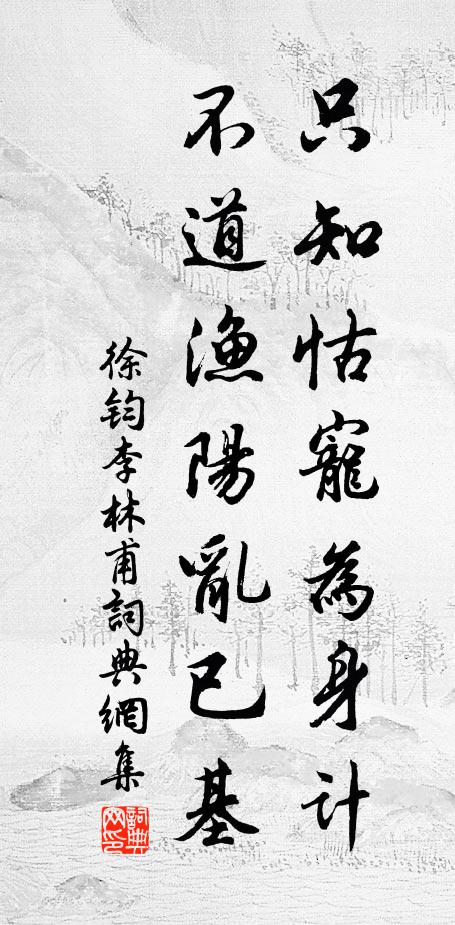 只知怙寵為身計
不道漁陽亂已基
徐鈞李林甫詞典網集
詞典網印